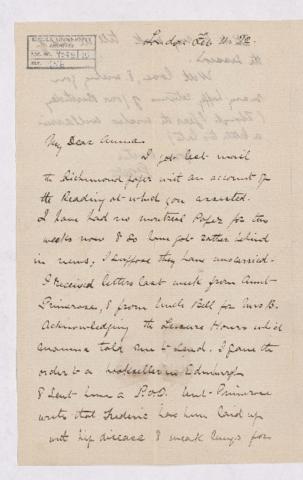 London Feb
My Dear Amma
I got last mail
the Richmond paper with an account of
the Reading at which you assisted.
I have had no montreal Paper for two
weeks now & so have got rather behind
in news, I suppose they have miscarried.
I received letters last week from Aunt
Primrose, & from Uncle Bell for Mrs B.
Acknowledging the Leisure Hours which
mamma told me to send. I gave the
order to a bookseller in Edinburgh
& sent him a P.O.O. Aunt Primrose
writes that Frederic has been laid up
with hip disease & weak lungs for